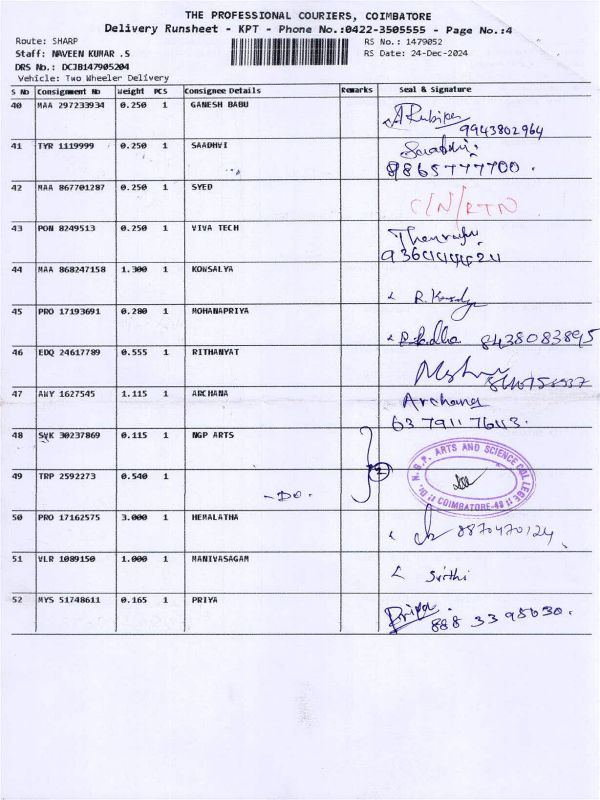 THE PROFESSIONAL COURIERS, COIMBATORE
Delivery Runsheet - KPT - Phone No.:0422-3505555 - Page No.:4
Route: SHARP
RS No.: 1479052
Staff: NAVEEN KUMAR .S
RS Date: 24-Dec-2024
DRS No.: DCJB147905204
Vehicle: Two Wheeler Delivery
S No Consignment No Weight PCS Consignee Details Remarks Seal & Signature
40 MAA 297233934 0.250 1 GANESH BABU
9943802964
41 TYR 1119999 0.250 1 SAADHVI
Saadhvi
9865777700.
42 MAA 867701287 0.250 1 SYED
C/N/RTN
43 PON 8249513 0.250 1 VIVA TECH
44 MAA 868247158 1.300 1 KONSALYA
45 PRO 17193691 0.280 1 MOHANAPRIYA
8438083895
46 EDQ 24617789 0.555 1 RITHANYAT
47 AWY 1627545 1.115 1 ARCHANA
Archana
48 SVK 30237869 0.115 1 NGP ARTS
2
DR. N.G.P. ARTS AND SCIENCE COLLEGE
COIMBATORE-48
49 TRP 2592273 0.540 1
-DO.
50 PRO 17162575 3.000 1 HEMALATHA
8870470124
51 VLR 1089150 1.000 1 MANIVASAGAM
52 MYS 51748611 0.165 1 PRIYA
Priya